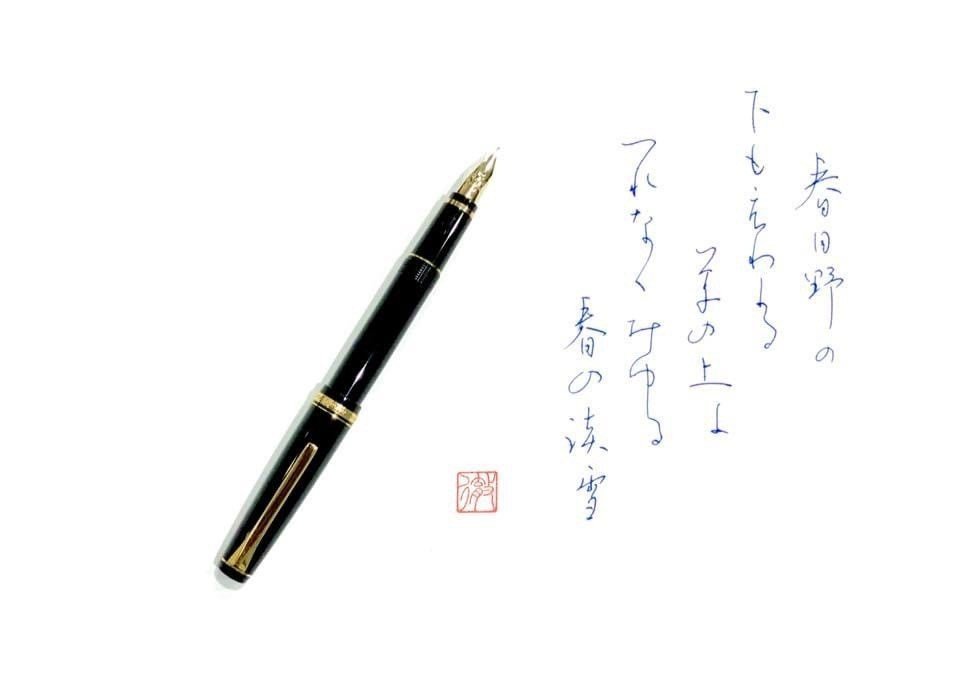 春日野の
下もえわたる
草の上に
つれなくみゆる
春の淡雪